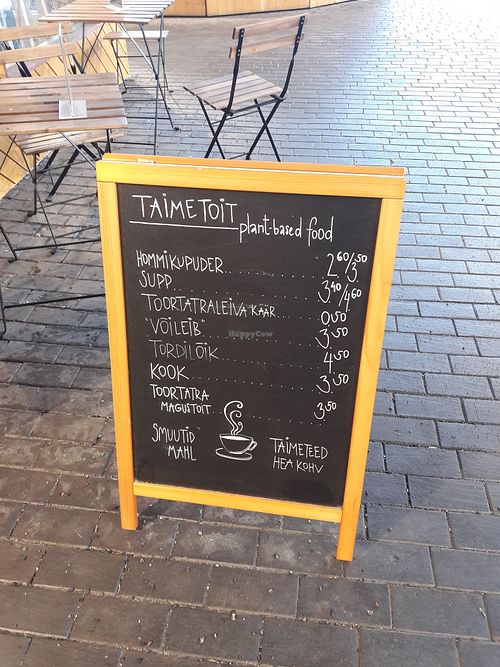 TAIMETOIT
plant-based food
HOMMIKUPUDER 2.60/3.50
SUPP 3.40/4.60
TOORTATRALEIVA KÄÄR 0.50
"VÕILEIB" 3.50
TORDILÕIK 4.50
KOOK 3.50
TOORTATRA
MAGUSTOIT 3.50
SMUUTID
MAHL
TAIMETEED
HEA KOHV
HappyCow